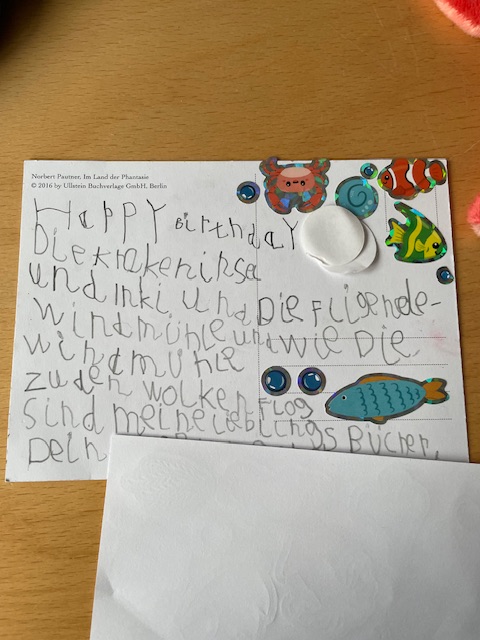 Norbert Pautner, Im Land der Phantasie
© 2016 by Ullstein Buchverlage GmbH, Berlin
HAPPY BirthdAY
Die Krakeninsel
und Inki und Die Fligende-
windmühle und wie Die
windmühle
zu den wolken Flog
sind meine lieblings Bücher.
Dein